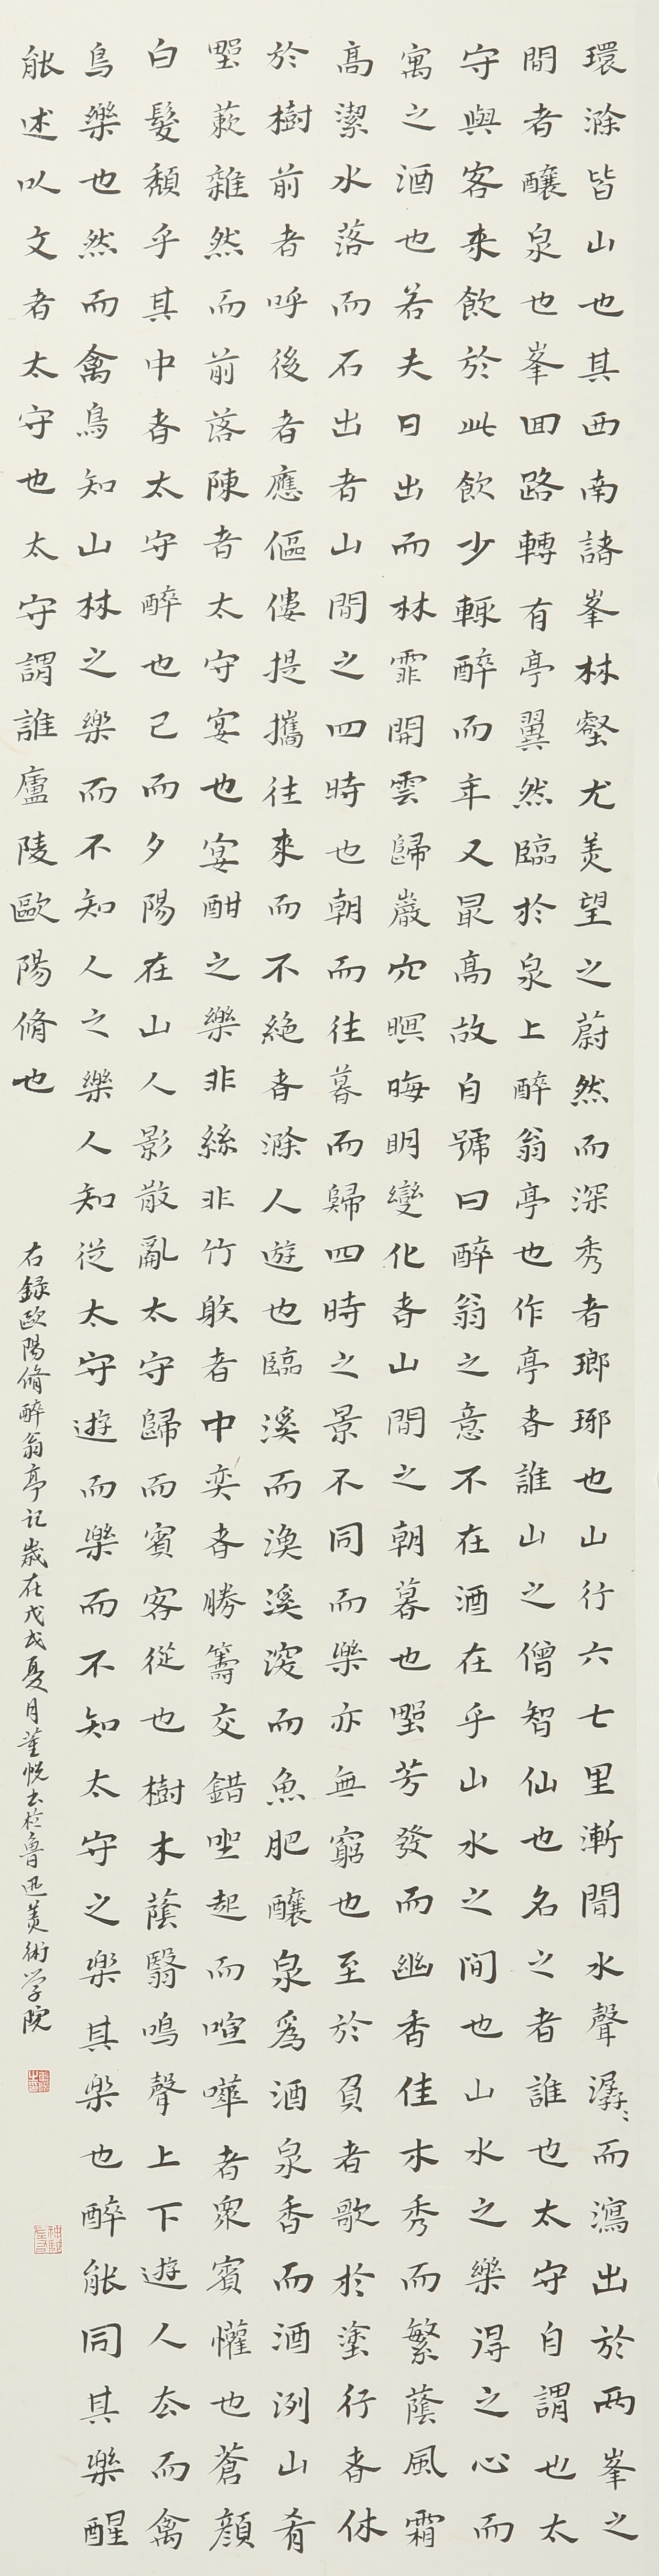 環滁皆山也其西南諸峯林壑尤美望之蔚然而深秀者瑯琊也山行六七里漸聞水聲潺〻而瀉出於兩峯之
間者釀泉也峯回路轉有亭翼然臨於泉上醉翁亭也作亭者誰山之僧智仙也名之者誰也太守自謂也太
守與客來飲於此飲少輒醉而年又最高故自號曰醉翁之意不在酒在乎山水之間也山水之樂得之心而
寓之酒也若夫日出而林霏開雲歸巖穴暝晦明變化者山間之朝暮也野芳發而幽香佳木秀而繁蔭風霜
高潔水落而石出者山間之四時也朝而往暮而歸四時之景不同而樂亦無窮也至於負者歌於塗行者休
於樹前者呼後者應傴僂提攜往來而不絕者滁人遊也臨溪而漁溪深而魚肥釀泉爲酒泉香而酒洌山肴
野蔌雜然而前落陳者太守宴也宴酣之樂非絲非竹射者中奕者勝籌交錯坐起而喧嘩者眾賓懽也蒼顏
白髮頹乎其中者太守醉也已而夕陽在山人影散亂太守歸而賓客從也樹木蔭翳鳴聲上下遊人去而禽
鳥樂也然而禽鳥知山林之樂而不知人之樂人知從太守遊而樂而不知太守之樂其樂也醉能同其樂醒
能述以文者太守也太守謂誰廬陵歐陽脩也
右録歐陽脩醉翁亭記歲在戊戌夏月董悅書於魯迅美術学院